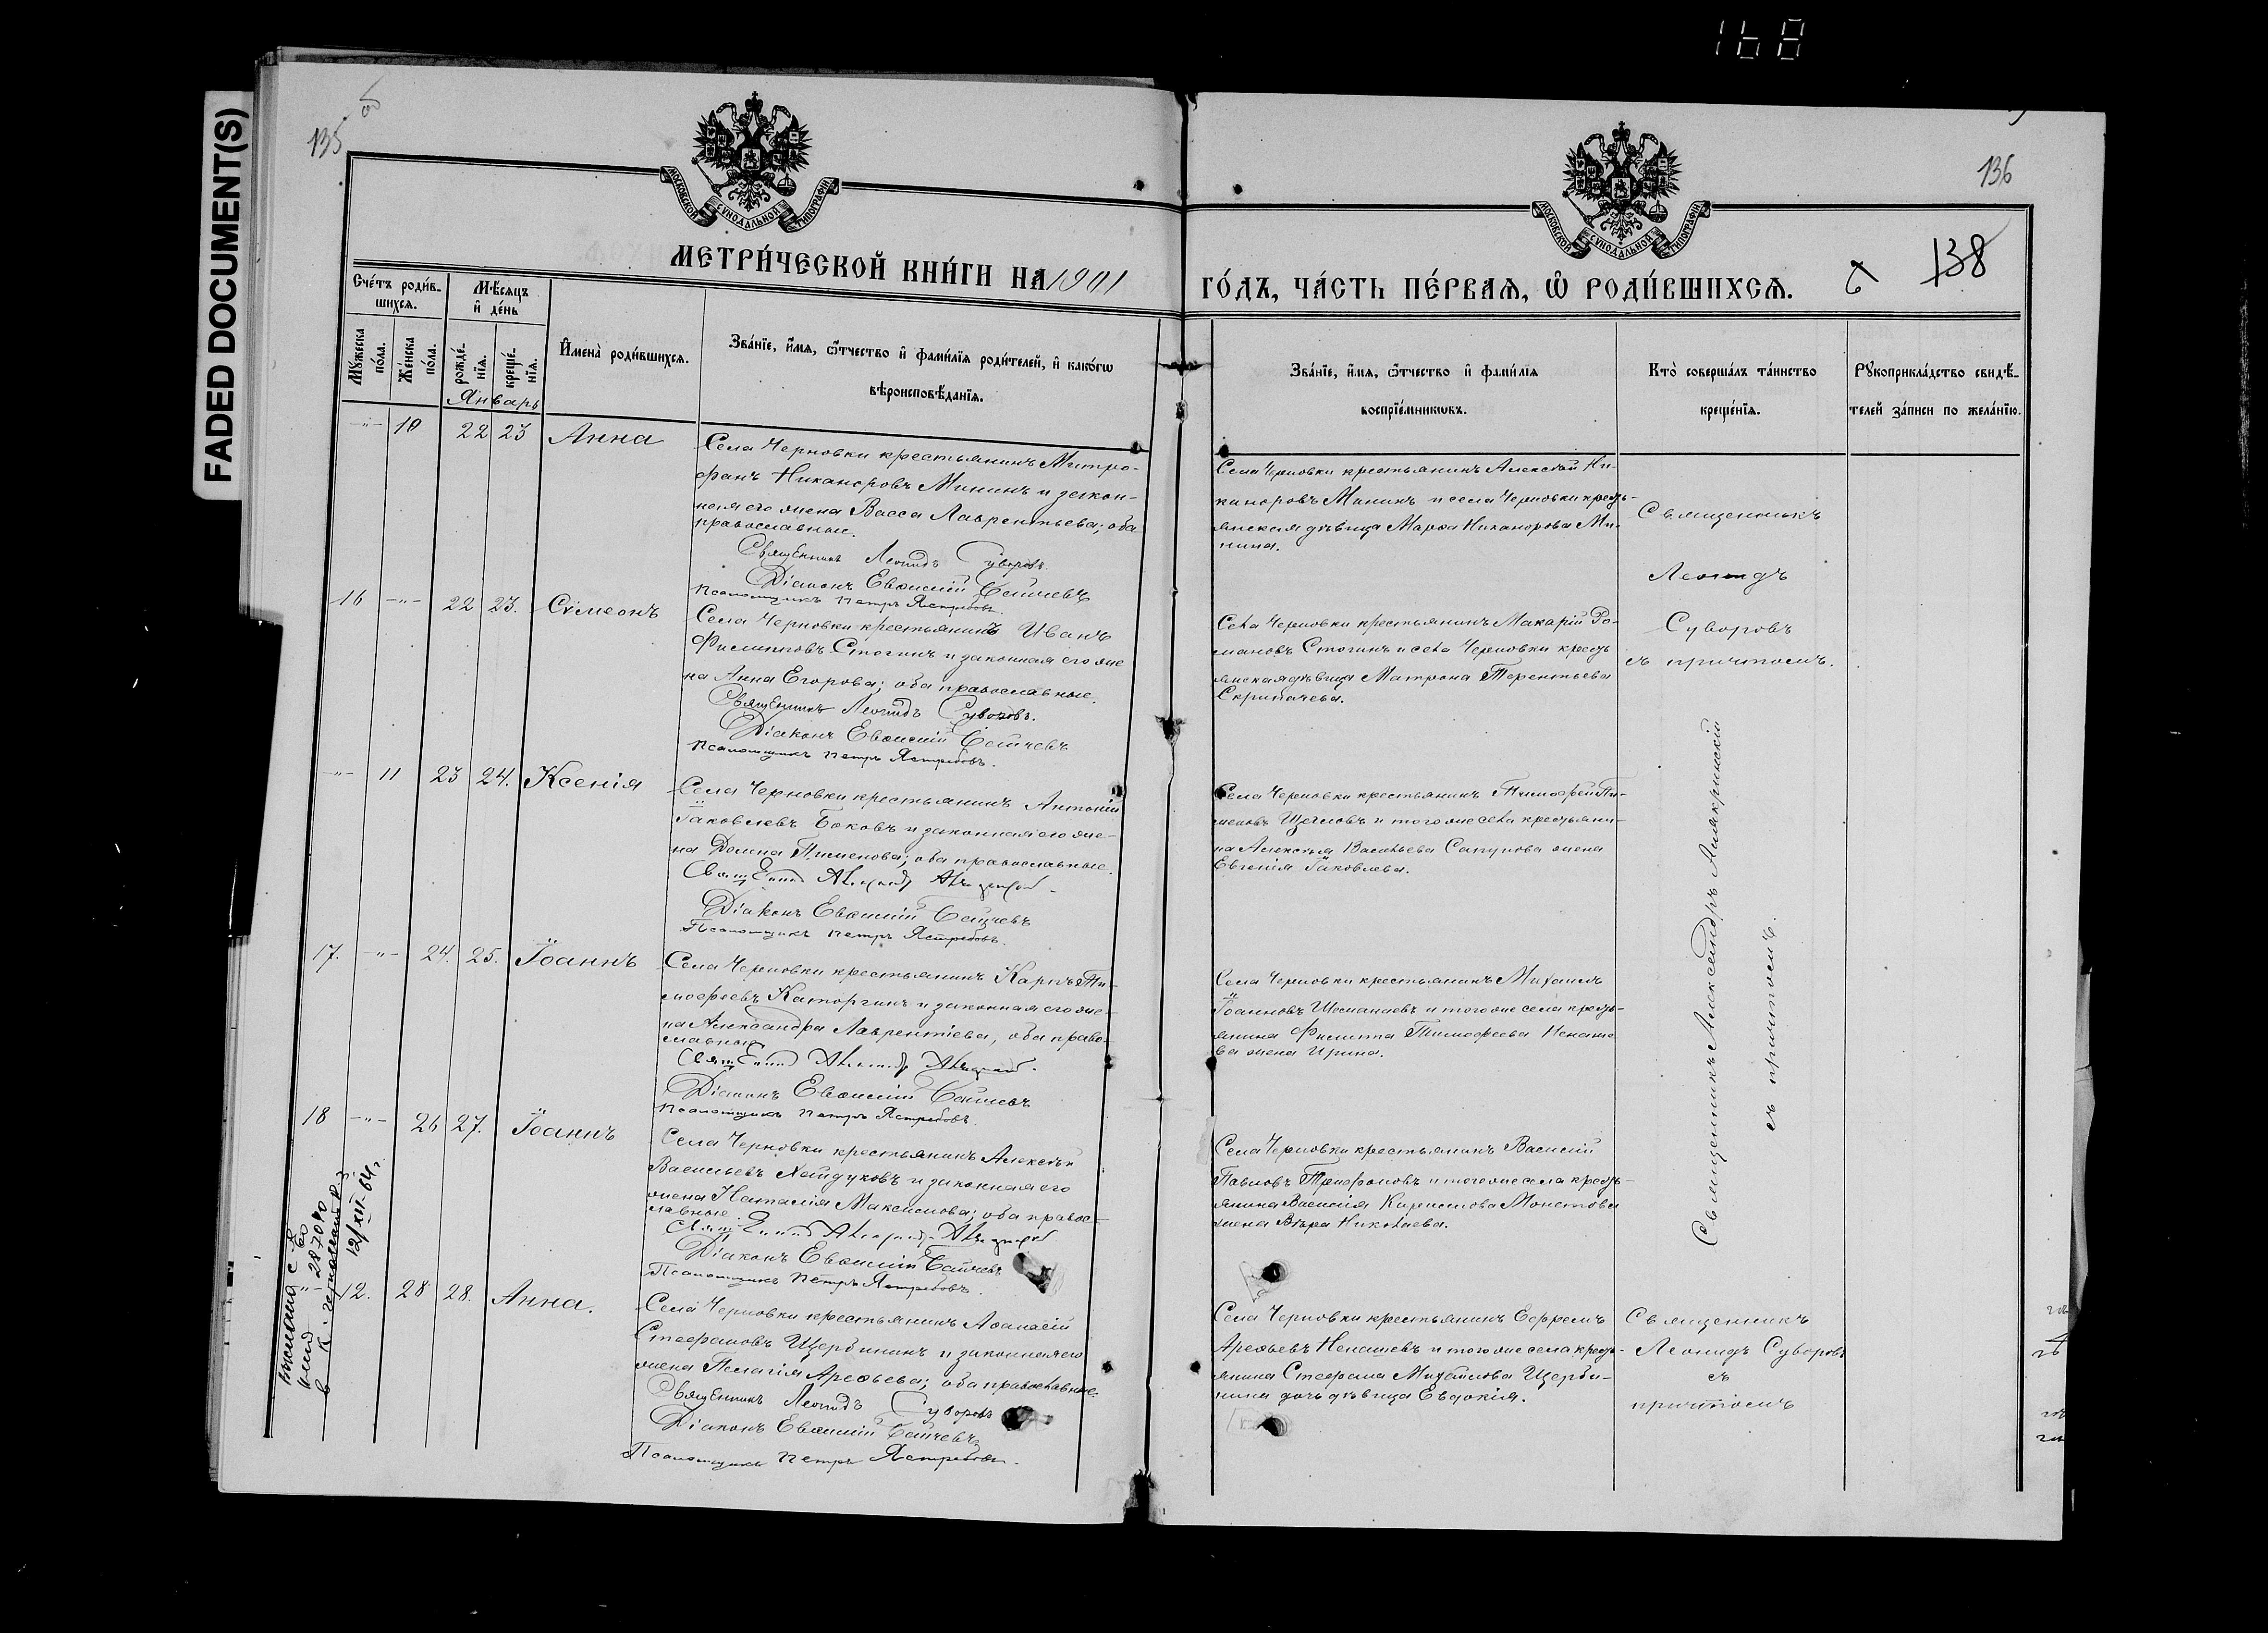 168
FADED DOCUMENT(S)
135 об
136
138
МОСКОВСКОЙ СѴНОДАЛЬНОЙ ТИПОГРАФІИ
МОСКОВСКОЙ СѴНОДАЛЬНОЙ ТИПОГРАФІИ
МЕТРИ́ЧЕСКОЙ КНИ́ГИ НА 1901
ГО́ДЪ, ЧА́СТЬ ПЕ́РВАЯ, Ѿ РОДИ́ВШИХСЯ.
Сче́тъ роди́в-
шихся.
Мѣ́сяцъ
и҆ де́нь
Мꙋ́жеска
по́ла.
Же́нска
по́ла.
рожде́-
нїя.
креще́-
нїя.
И҆мена̀ роди́вшихся.
Зва́нїе, и҆́мя, ѻ҆́тчество и҆ фами́лїя роди́телей, и҆ како́гѡ
вѣроисповѣ́данїя.
Зва́нїе, и҆́мя, ѻ҆́тчество и҆ фами́лїя
воспрїе́мникѡвъ.
Кто̀ соверша́лъ та́инство
креще́нїя.
Рꙋкоприкла́дство свидѣ́-
телей за́писи по жела́нїю.
Январь
-"- 10 22 23 Анна
Села Черновки крестьянинъ Митро-
фанъ Никаноровъ Мининъ и закон-
ная его жена Васса Лаврентьева; оба
православные.
Священникъ Леонидъ Суворовъ.
Діаконъ Евѳимій
Псаломщикъ Петръ Ястребовъ.
Села Черновки крестьянинъ Алексѣй Ни-
каноровъ Мининъ и села Черновки кресть-
янская дѣвица Марѳа Никанорова Ми-
нина.
Священникъ
Леонидъ
Суворовъ
съ причтомъ.
16 -"- 22 23. Сѵмеонъ
Села Черновки крестьянинъ Иванъ
Филипповъ Стогинъ и законная его же
на Анна Егорова; оба православные.
Священникъ Леонидъ Суворовъ.
Діаконъ Евѳимій
Псаломщикъ Петръ Ястребовъ.
Села Черновки крестьянинъ Макарій Ро-
мановъ Стогинъ и села Черновки кресть
янская дѣвица Матрона Терентьева
Скрипачева.
-"- 11 23 24. Ксенія
Села Черновки крестьянинъ Антоній
Іаковлевъ Боковъ и законная его же-
на Домна Пименова; оба православные.
Діаконъ Евѳимій
Псаломщикъ Петръ Ястребовъ.
Села Черновки крестьянинъ Тимоѳей Пи-
меновъ Щегловъ и того же села крестьяни-
на Алексѣя Васильева Сапунова жена
Евгенія Іаковлева.
Священникъ Александръ Алякринскій
съ причтомъ.
17. -"- 24. 25. Іоаннъ
Села Черновки крестьянинъ Карпъ Ти-
моѳеевъ Каторгинъ и законная его же-
на Александра Лаврентіева, оба право-
славные
Діаконъ Евѳимій
Псаломщикъ Петръ Ястребовъ.
Села Черновки крестьянинъ Михаилъ
Іоанновъ и того же села кресть-
янина Филиппа Тимофеева Ненаше
ва жена Ирина.
18 -"- 26 27. Іоаннъ
Села Черновки крестьянинъ Алексѣй
Васильевъ Хайдуковъ и законная его
жена Наталія Максимова; оба правос-
лавные.
Діаконъ Евѳимій
Псаломщикъ Петръ Ястребовъ.
Села Черновки крестьянинъ Василій
Павловъ Трифоновъ и того же села кресть-
янина Василія жена Вѣра Николаева.
12/XII-64 г.
-"- 12. 28 28. Анна.
Села Черновки крестьянинъ Аѳанасій
Стефановъ Щербининъ и законная его
жена Пелагія Арефьева; оба православные.
Священникъ Леонидъ Суворовъ
Діаконъ Евѳимій
Псаломщикъ Петръ Ястребовъ.
Села Черновки крестьянинъ Ефремъ
Арефьевъ Ненашевъ и того же села кресть-
янина Стефана Михайлова Щерби-
нина дочь дѣвица Евдокія.
Священникъ
Леонидъ Суворовъ
съ
причтомъ